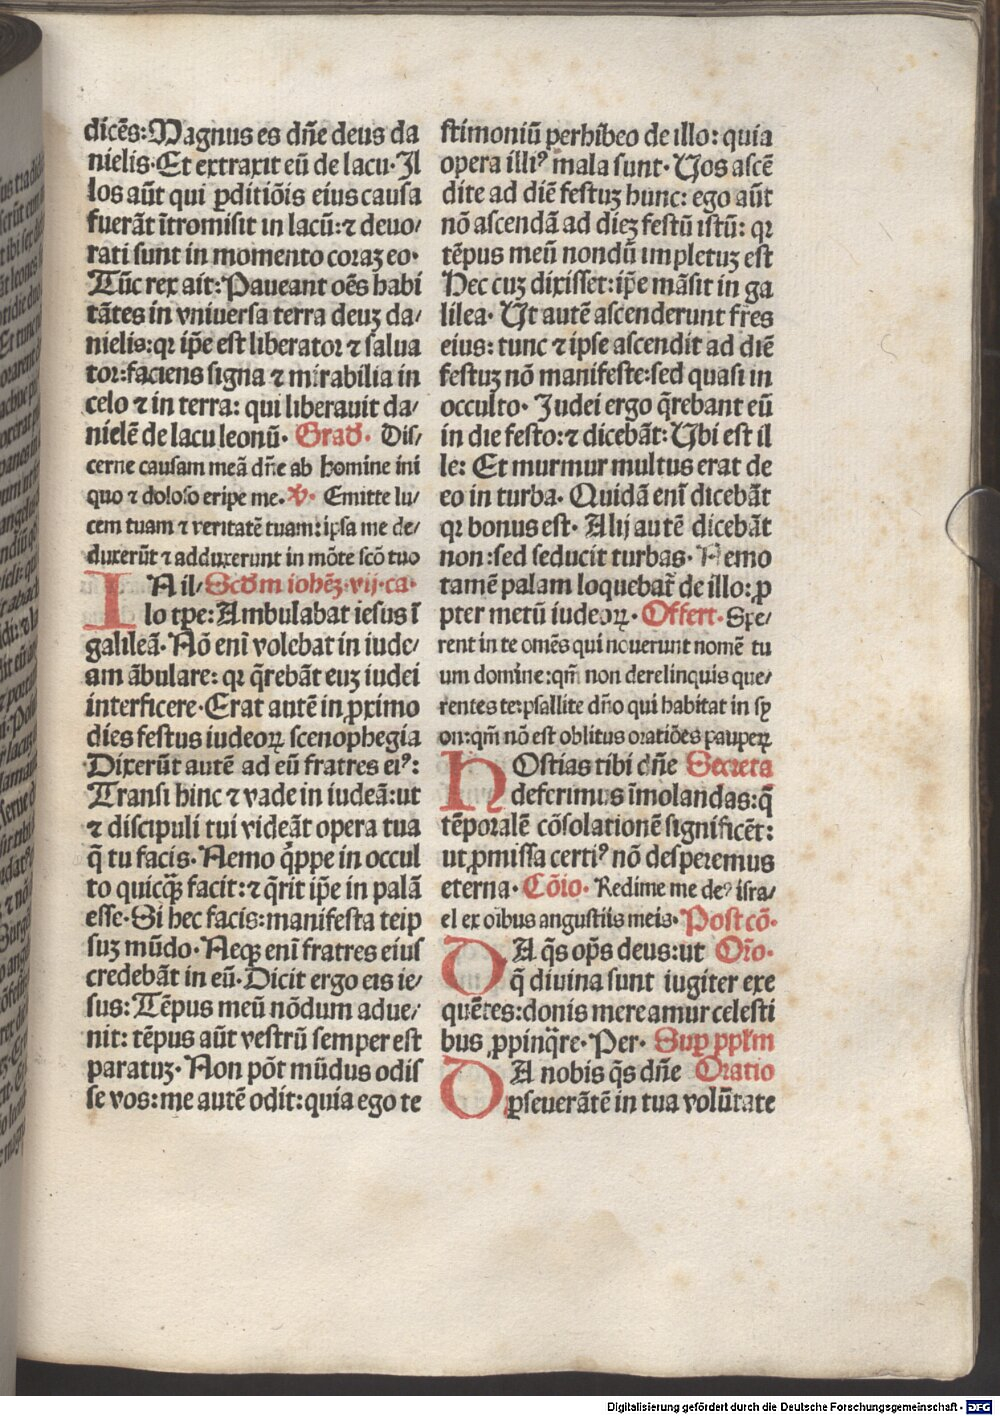 dicēs: Magnus es dn̄e deus da
nielis. Et extraxit eū de lacu. Il
los aūt qui ꝑditiōis eius causa
fuerāt ītromisit in lacū: ⁊ deuo⸗
rati sunt in momento coraꝫ eo.
Tūc rex ait: Paueant oēs habi
tātes in vniuersa terra deuꝫ da⸗
nielis: qꝛ ip̄e est liberator ⁊ salua
tor: faciens signa ⁊ mirabilia in
celo ⁊ in terra: qui liberauit da⸗
nielē de lacu leonū. Grad. Dis⸗
cerne causam meā dn̄e ab homine ini
quo ⁊ doloso eripe me. ℣. Emitte lu⸗
cem tuam ⁊ veritatē tuam: ipsa me de⸗
duxerūt ⁊ adduxerunt in mōte scō tuo
IN il⸗ Scd̄m iohēꝫ. vij. ca.
lo tp̄e: Ambulabat iesus ī
galileā. Nō enī volebat in iude⸗
am ābulare: qꝛ q̄rebāt euꝫ iudei
interficere. Erat autē in ꝓximo
dies festus iudeoꝝ scenophegia
Dixerūt autē ad eū fratres eiꝰ:
Transi hinc ⁊ vade in iudeā: ut
⁊ discipuli tui videāt opera tua
q̄ tu facis. Nemo q̇ppe in occul
to quicꝙ̄ facit: ⁊ q̄rit ip̄e in palā
esse. Si hec facis: manifesta teip
suꝫ mūdo. Neqꝫ enī fratres eius
credebāt in eū. Dicit ergo eis ie⸗
sus: Tēpus meū nōdum adue⸗
nit: tēpus aūt vestrū semper est
paratuꝫ. Non pōt mūdus odis
se vos: me autē odit: quia ego te
stimoniū perhibeo de illo: quia
opera illiꝰ mala sunt. Vos ascē
dite ad diē festuꝫ hunc: ego aūt
nō ascendā ad dieꝫ festū istū: qꝛ
tēpus meū nondū impletuꝫ est
Hec cuꝫ dixisset: ip̄e māsit in ga
lilea. Ut autē ascenderunt fr̄es
eius: tunc ⁊ ipse ascendit ad diē
festuꝫ nō manifeste: sed quasi in
occulto. Judei ergo q̄rebant eū
in die festo: ⁊ dicebāt: Ubi est il
le: Et murmur multus erat de
eo in turba. Quidā enī dicebāt
qꝛ bonus est. Alij autē dicebāt
non: sed seducit turbas. Nemo
tamē palam loquebat̄ de illo: ꝓ
pter metū iudeoꝝ. Offert. Spe⸗
rent in te omēs qui nouerunt nomē tu
um domine: qm̄ non derelinquis que⸗
rentes te: psallite dn̄o qui habitat in sy
on: qm̄ nō est oblitus oratiōes pauperꝝ
HOstias tibi dn̄e Secreta
deferimus īmolandas: q̄
tēporalē cōsolationē significēt:
ut ꝓmissa certiꝰ nō desperemus
eterna. Cōio. Redime me deꝰ isra⸗
el ex oībus angustiis meis. Post cō.
DA q̄s op̄s deus: ut Or̄o.
q̄ divina sunt iugiter exe
quētes: donis mereamur celesti
bus ꝓpinq̄re. Per. Suꝑ pplm̄
DA nobis q̄s dn̄e Oratio
ꝑseuerātē in tua volūtate
Digitalisierung gefördert durch die Deutsche Forschungsgemeinschaft - DFG